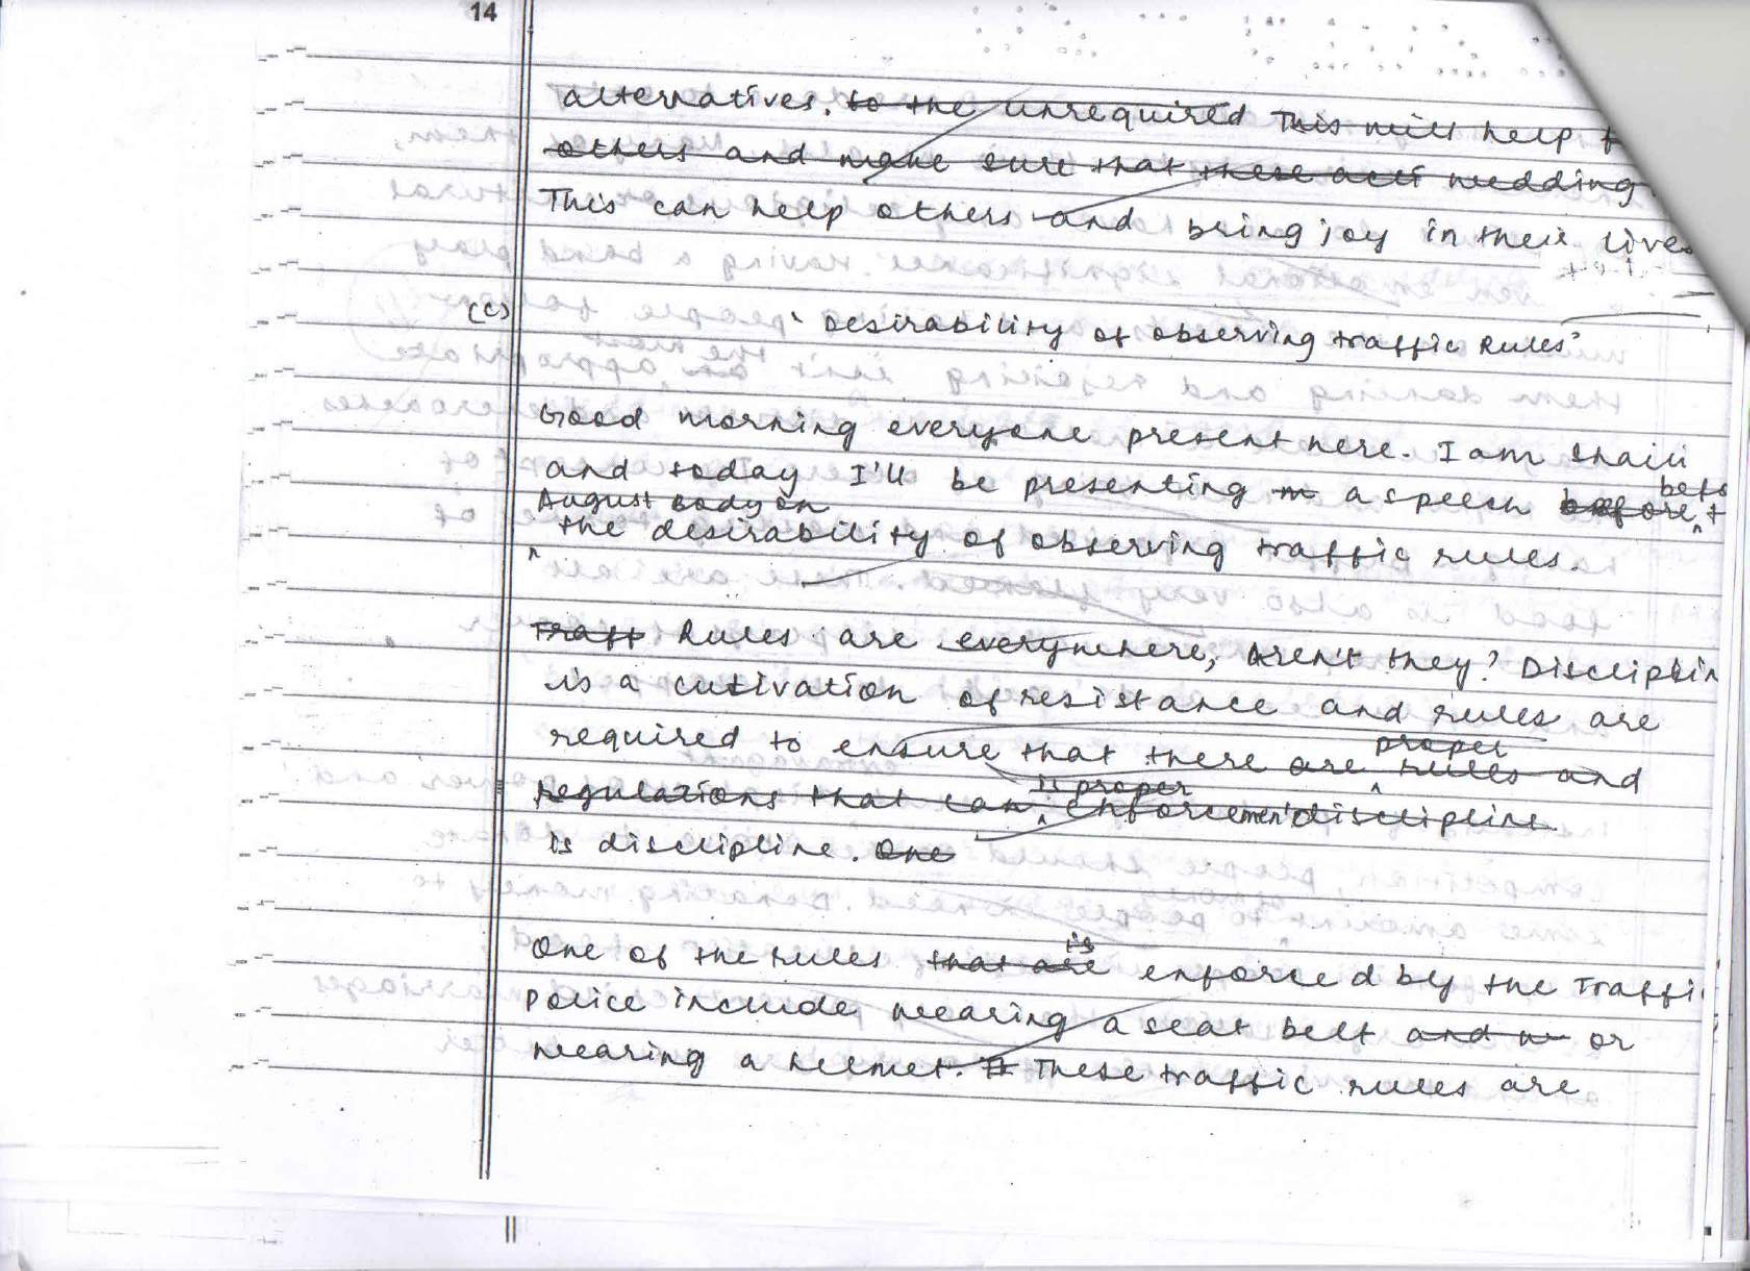 14
alternatives. to the unrequired This will help
others and make sure that these acti wedding
This can help others and bring joy in their lives
(c) 'Desirability of observing traffic Rules'
Good morning everyone present here. I am Shaili
and today I'll be presenting m a speech before
August body on
the desirability of observing traffic rules.
Traff Rules are everywhere, Aren't they? Disciplin
is a cutivation of resistance and rules are
required to ensure that there are proper rules and
regulations that can is proper enforcemen'discipline
is discipline. One
One of the rules that are is enforced by the Traffi
Police include wearing a seat belt and w or
wearing a helmet. It These traffic rules are